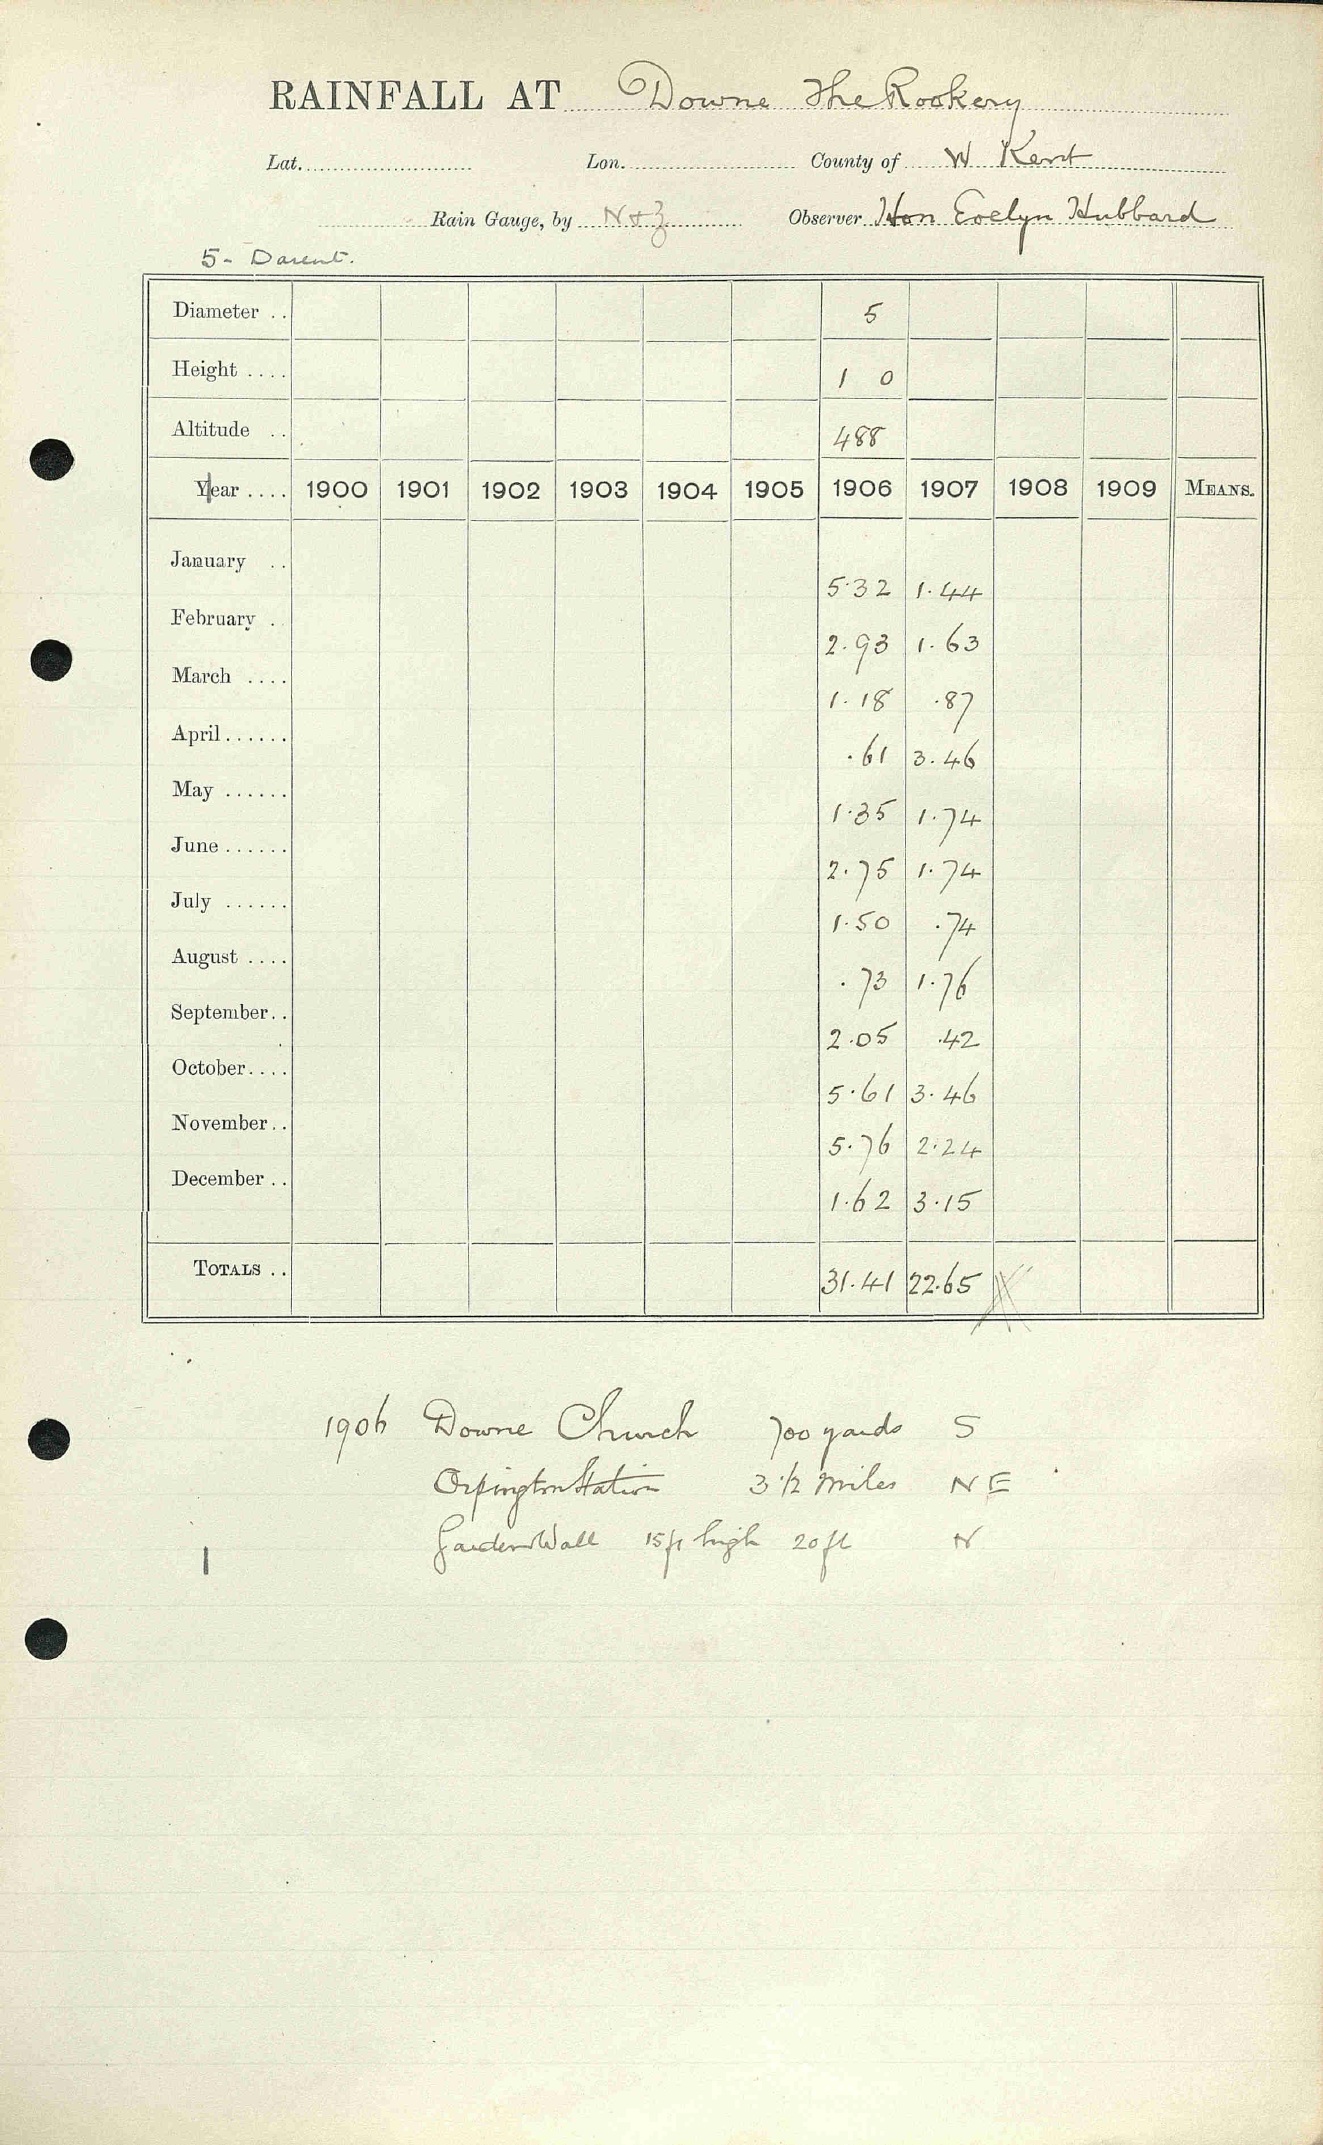 RAINFALL AT Downe The Rookery
Lat. Lon. County of W Kent
Rain Gauge, by N & Z Observer Hon Evelyn Hubbard
5 - Darent.
Diameter .. 5
Height .... 1 0
Altitude .. 488
Year .... 1900 1901 1902 1903 1904 1905 1906 1907 1908 1909 MEANS.
January .. 5.32 1.44
February . 2.93 1.63
March .... 1.18 .87
April...... .61 3.46
May ...... 1.35 1.74
June...... 2.75 1.74
July ...... 1.50 .74
August .... .73 1.76
September.. 2.05 .42
October.... 5.61 3.46
November.. 5.76 2.24
December .. 1.62 3.15
TOTALS .. 31.41 22.65
1906 Downe Church 700 yards S
Orpington Station 3 1/2 miles N E
Garden Wall 15ft high 20ft N